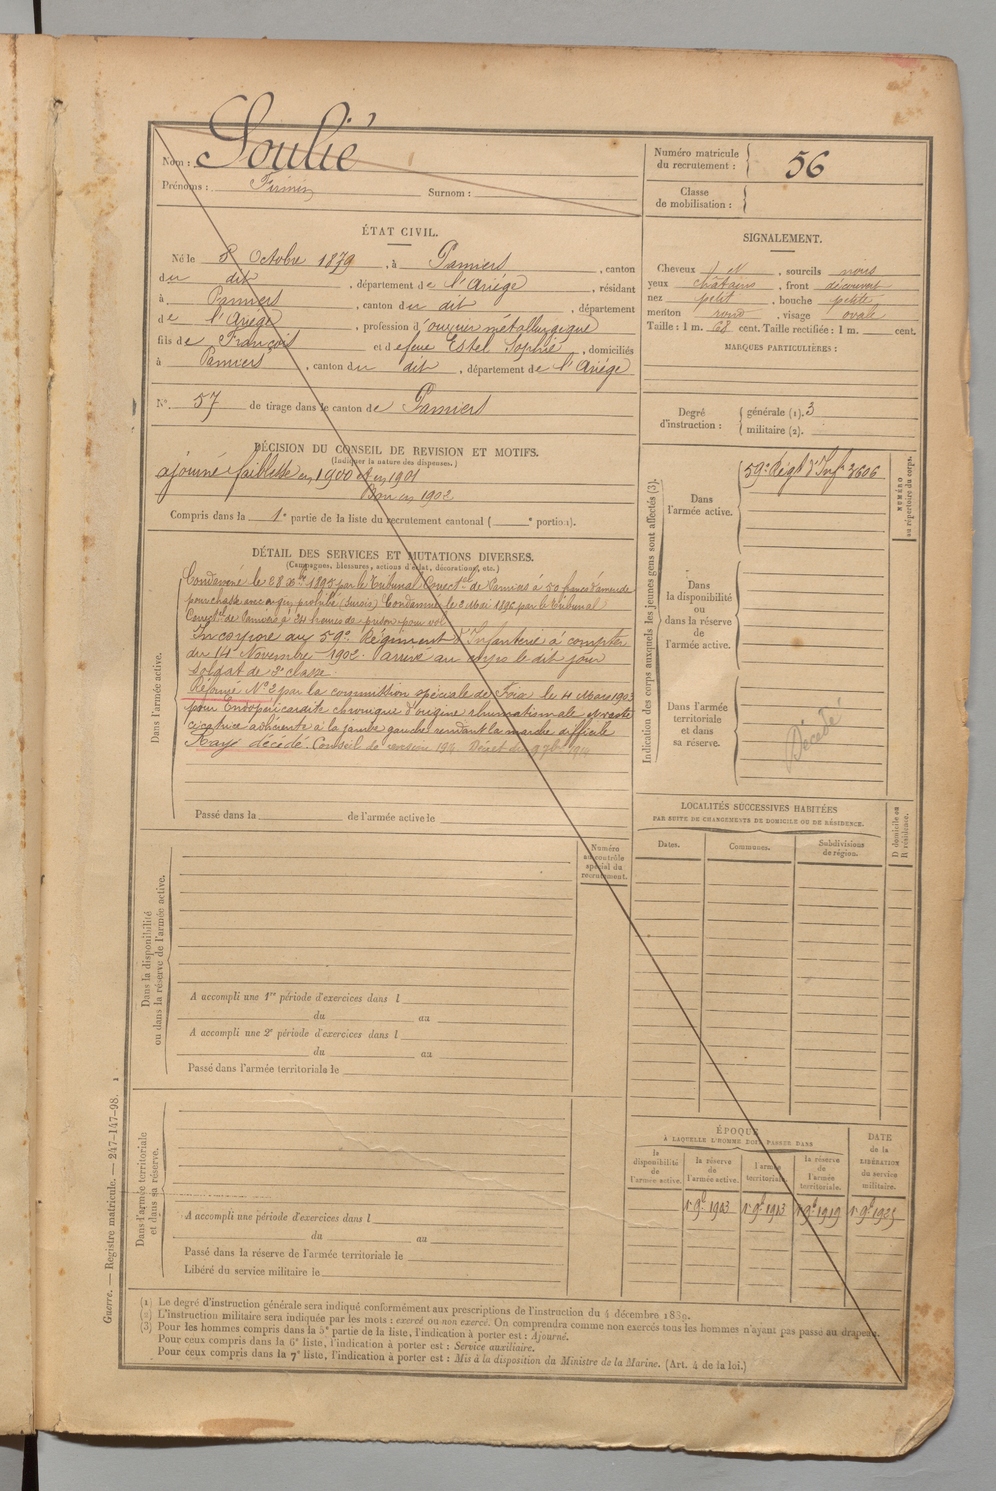 Nom : Soulié
Prénoms : Firmin Surnom :
Numéro matricule du recrutement : 56
Classe de mobilisation :
ÉTAT CIVIL.
Né le 8 Octobre 1879, à Pamiers, canton
du dit, département de l'Ariége, résidant
à Pamiers, canton du dit, département
de l'Ariége, profession d'ouvrier métallurgique
fils de François et de feue Estel Sophie, domiciliés
à Pamiers, canton du dit, département de l'Ariége
N° 57 de tirage dans le canton de Pamiers
SIGNALEMENT.
Cheveux, sourcils noirs
yeux chatains, front découvert
nez petit, bouche petite
menton rond, visage ovale
Taille : 1 m. 68 cent. Taille rectifiée : 1 m. cent.
MARQUES PARTICULIÈRES :
Degré d'instruction :
générale (1). 3
militaire (2).
DÉCISION DU CONSEIL DE REVISION ET MOTIFS.
(Indiquer la nature des dispenses.)
ajourné faiblesse en 1900 et en 1901
Bon en 1902
Compris dans la 1e partie de la liste du recrutement cantonal ( e portion).
DÉTAIL DES SERVICES ET MUTATIONS DIVERSES.
(Campagnes, blessures, actions d'éclat, décorations, etc.)
Dans l'armée active.
Condamné le 28 1895 par le Tribunal Correctel de Pamiers à 50 francs d'amende
pour chasse avec engin prohibé (sursis). Condamné le 2 Mai 1896 par le Tribunal
Correctel de Pamiers à 24 heures de prison pour vol
Incorporé au 59e Régiment d'Infanterie à compter
du 14 Novembre 1902. Arrivé au corps le dit jour
soldat de 2e classe.
Réformé N° 2 par la commission spéciale de Foix le 4 Mars 1903
pour Endopericardite chronique d'origine rhumatismale
cicatrice adhérente à la jambe gauche rendant la marche difficile
Rayé décédé. Conseil de revision 191 Décret du 9 7bre 1914
Passé dans la de l'armée active le
Indication des corps auxquels les jeunes gens sont affectés (3).
NUMÉRO au répertoire du corps.
Dans l'armée active.
59e Régt d'Inf 3606
Dans la disponibilité ou dans la réserve de l'armée active.
Dans l'armée territoriale et dans sa réserve.
Décédé
LOCALITÉS SUCCESSIVES HABITÉES
PAR SUITE DE CHANGEMENTS DE DOMICILE OU DE RÉSIDENCE.
Dates. Communes. Subdivisions de région.
D domicile ou R résidence.
Dans la disponibilité ou dans la réserve de l'armée active.
Numéro au contrôle spécial du recrutement.
A accompli une 1re période d'exercices dans l
du au
A accompli une 2e période d'exercices dans l
du au
Passé dans l'armée territoriale le
Dans l'armée territoriale et dans sa réserve.
A accompli une période d'exercices dans l
du au
Passé dans la réserve de l'armée territoriale le
Libéré du service militaire le
ÉPOQUE
À LAQUELLE L'HOMME DOIT PASSER DANS
la disponibilité de l'armée active.
la réserve de l'armée active.
l'armée territoriale.
la réserve de l'armée territoriale.
DATE de la LIBÉRATION du service militaire.
1er 9bre 1903 1er 9bre 1913 1er 9bre 1919 1er 9bre 1925
Guerre. — Registre matricule. — 247-147-98. 1
(1) Le degré d'instruction générale sera indiqué conformément aux prescriptions de l'instruction du 4 décembre 1889.
(2) L'instruction militaire sera indiquée par les mots : exercé ou non exercé. On comprendra comme non exercés tous les hommes n'ayant pas passé au drapeau.
(3) Pour les hommes compris dans la 5e partie de la liste, l'indication à porter est : Ajourné.
Pour ceux compris dans la 6e liste, l'indication à porter est : Service auxiliaire.
Pour ceux compris dans la 7e liste, l'indication à porter est : Mis à la disposition du Ministre de la Marine. (Art. 4 de la loi.)